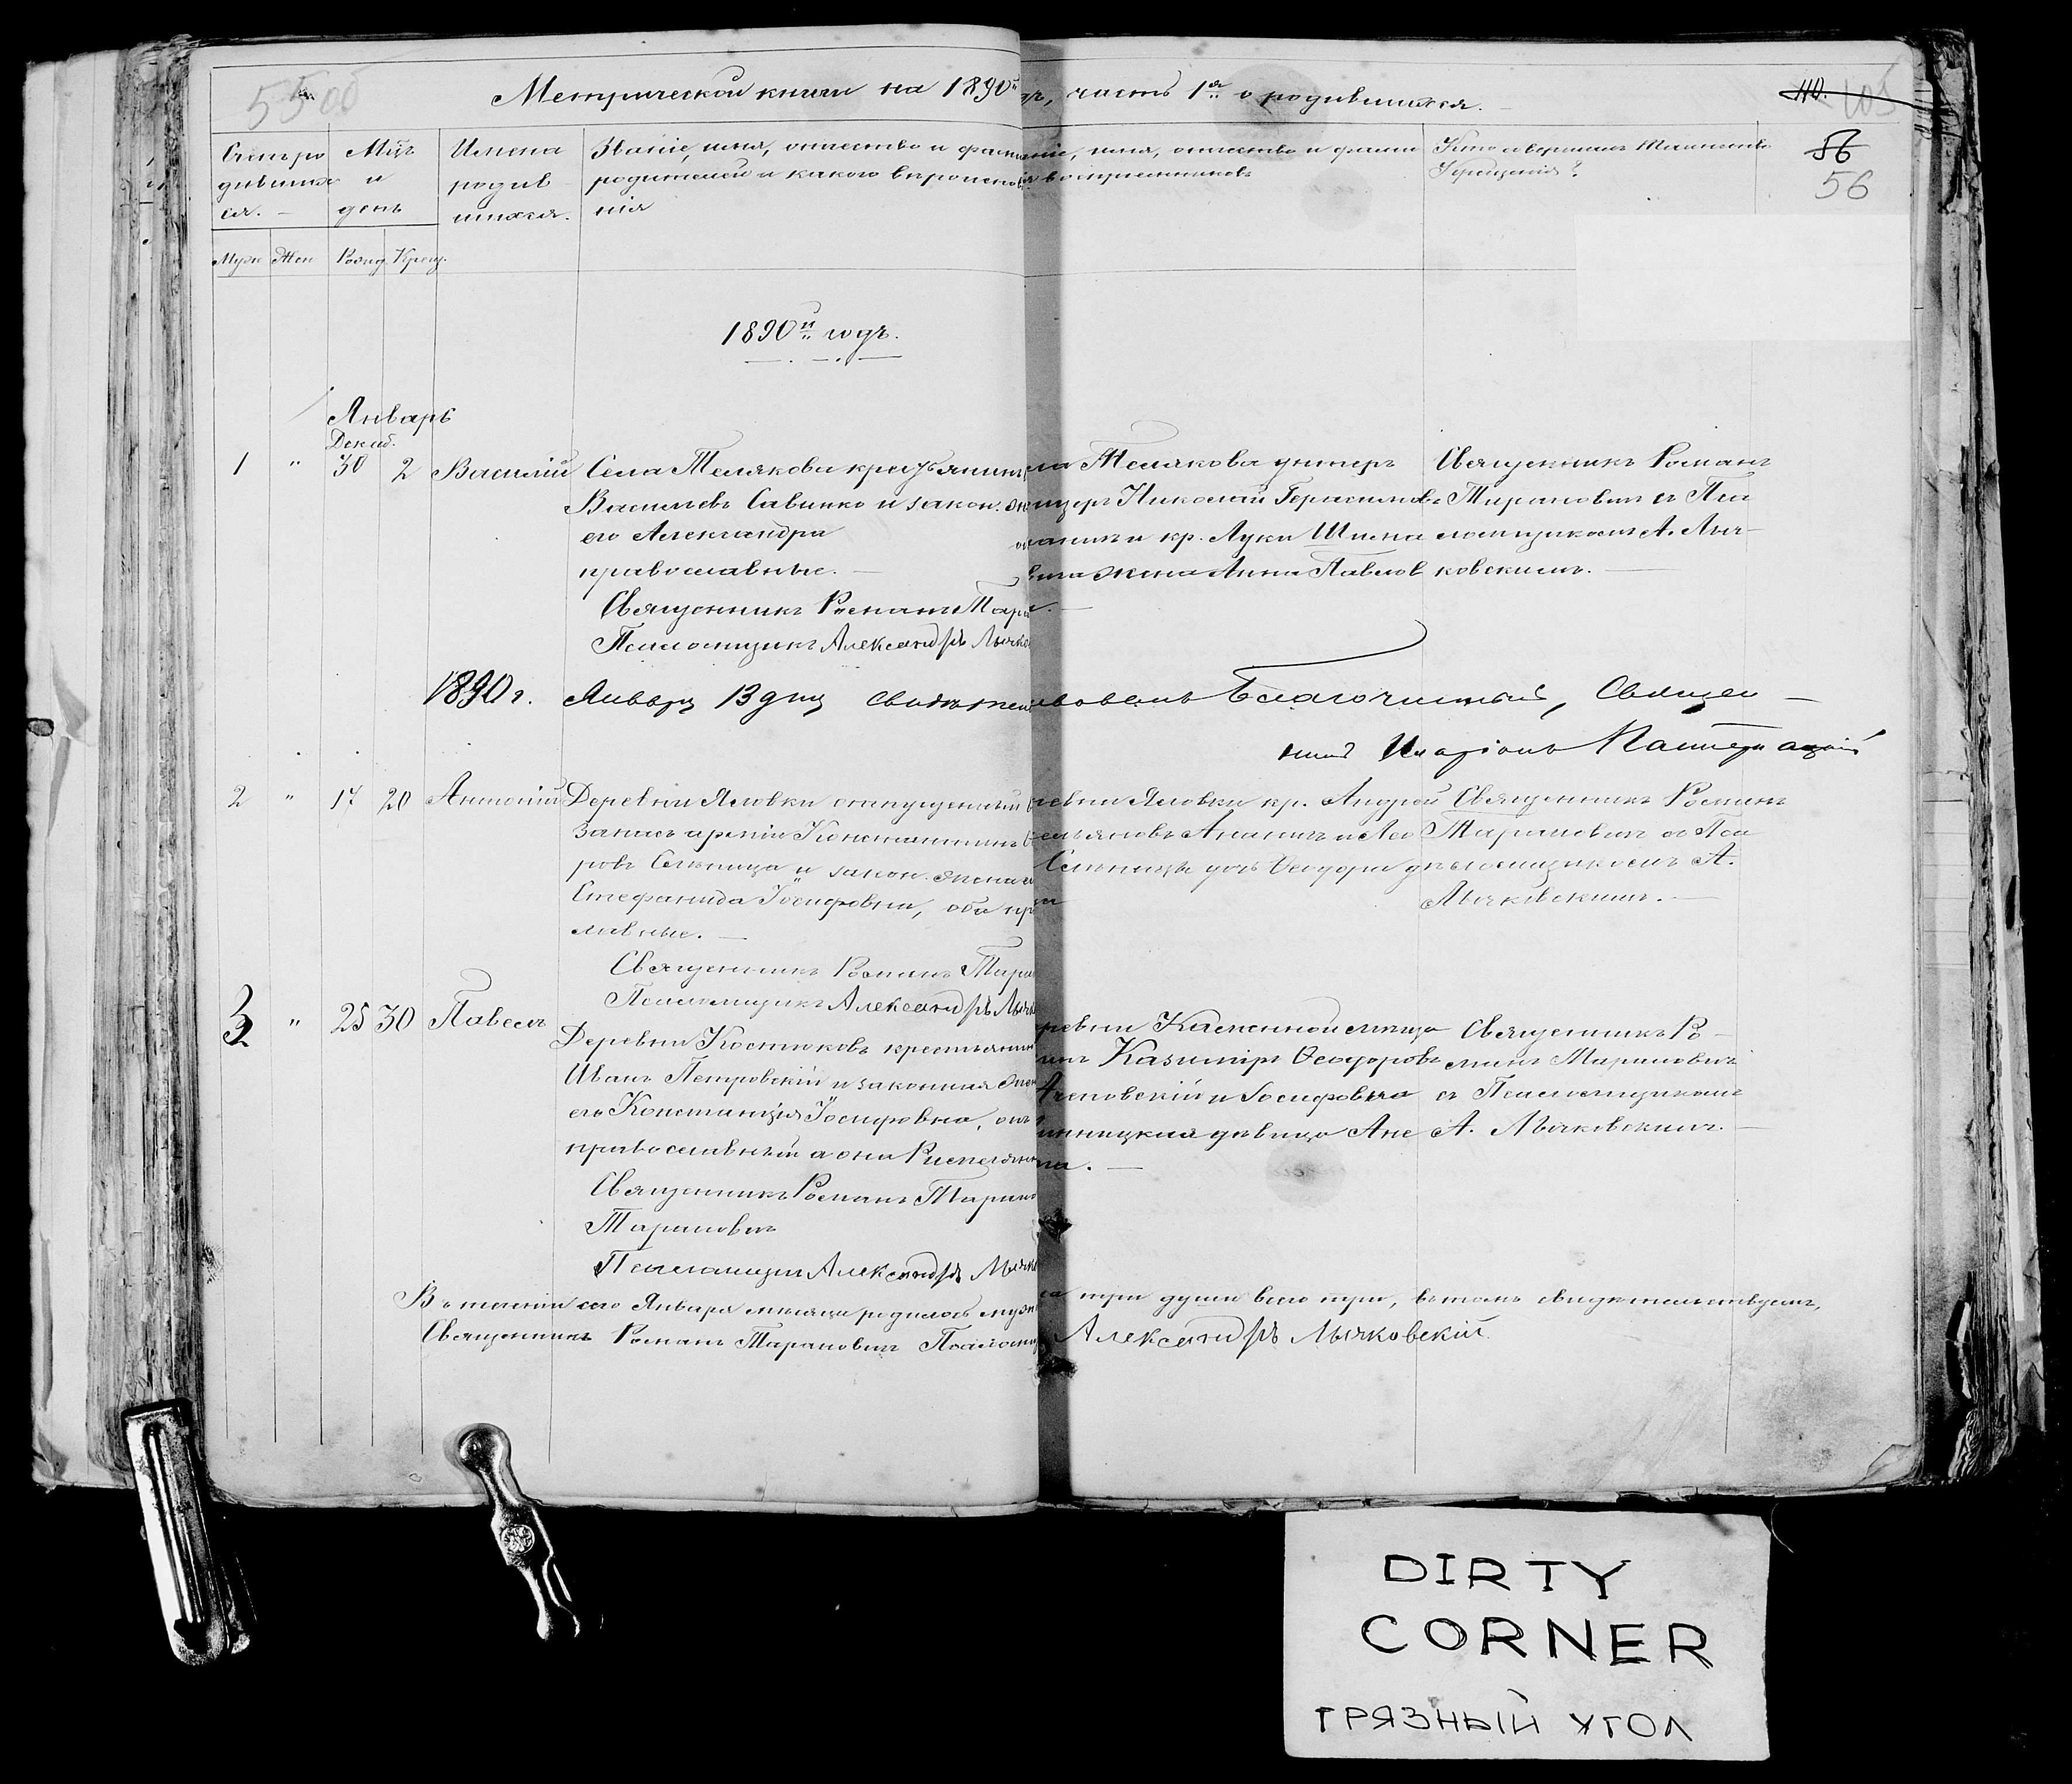 Метрической книги на 1890й
гъ, часть 1я о родившихся.
110.
105
5500
56
56
Счетъ ро
дивших
ся.
Мцъ
и
день
Имена
родив
шихся.
Званіе, имя, отчество и фам
родителей и какого вѣроиспов
нія
ніе, имя, отчество и фами
воспріемниковъ
Кто совершалъ Таинство
Крещенія?
Муж Жен Рожд. Крещ.
1890й годъ.
Январь
Декаб.
1 " 30 2 Василій
Села Телякова крестьянинъ
Васильевъ Савинко и закон. же
его Александра
православные.
Священникъ Романъ Тара
Псаломщикъ Александръ Лычко
Телякова унтеръ
церъ Николай Герасимовъ
и кр. Луки Шина
жена Анна Павлов
Священникъ Романъ
Тарановичъ съ Пса
ломщикомъ А. Лыч-
ковскимъ.
1890 г. Января 13 дня свидѣтель
ствовалъ Благочинный, Священ-
никъ Иларіонъ
2 " 17 20 Антоній
Деревни Яловки отпущенный въ
запасъ арміи Константинъ
ровъ Селюница и закон. жена е
Стефанида Іосифовна, оба пр
лавные.
Священникъ Романъ Тара
Псаломщикъ Александръ Лычк
ревни Яловки кр. Андрей
и
дочь Ѳеодора д
Священникъ Романъ
Тарановичъ съ Пса
ломщикомъ А.
Лычковскимъ.
3 " 25 30 Павелъ
Деревни Костюковъ крестьянин
Иванъ Петровскій и законная жен
его Констанція Іосифовна, онъ
православный а она Римско
Священникъ Романъ Тарано
Тарановичъ
Псаломщикъ Александръ Лычк
ревни Каменной
Казимиръ Ѳеодоровъ
и Іосифовна
дѣвица Ане
на.
Священникъ Ро-
манъ Тарановичъ
съ Псаломщикомъ
А. Лычковскимъ.
В теченіи сего Января мѣсяца родилось муже
ка три души всего три, въ томъ свидѣтельствуемъ,
Священникъ Романъ Тарановичъ Псаломщ
Александръ Лычковскій.
DIRTY
CORNER
ГРЯЗНЫЙ УГОЛ